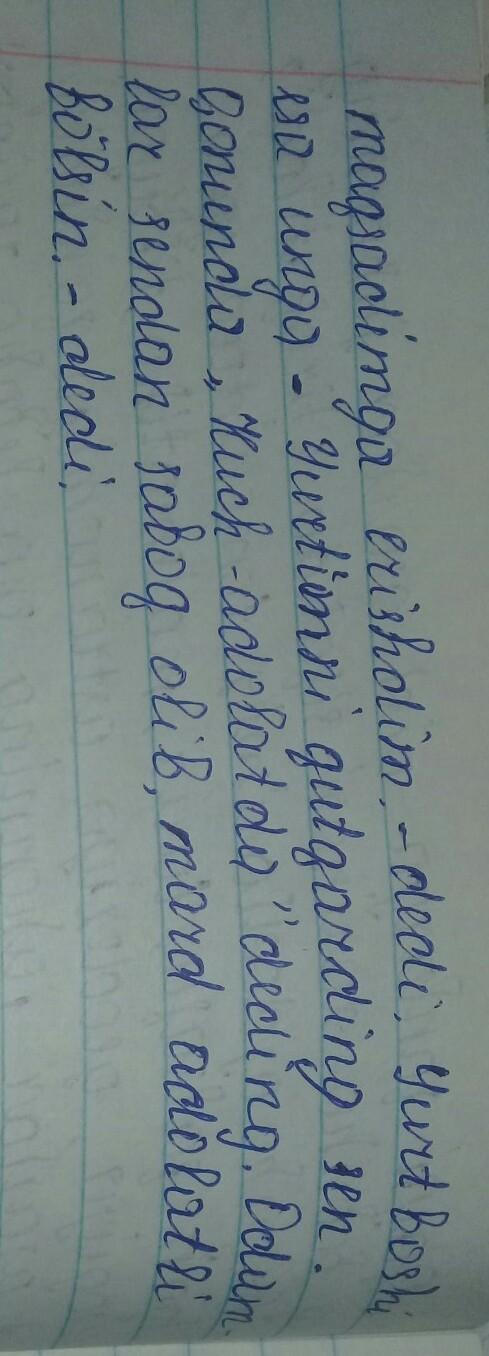 magsadimga erishdim, - dedi, yurt boshi
esa unga - Yurtimni qutqarding sen.
Qonunda „Kuch-adolatda" deding. Odam-
lar sendan saboq olib, mard adolatli
bo'lsin, - dedi.